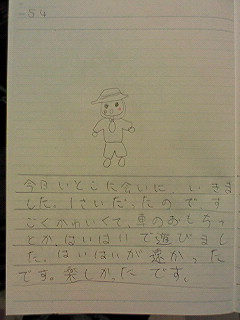 今日いとこに会いに、いきま
した。1さいだったのです
ごくかわいくて、車のおもちゃ
とか、はいはいで遊びまし
た。はいはいが速かった
です。楽しかったです。